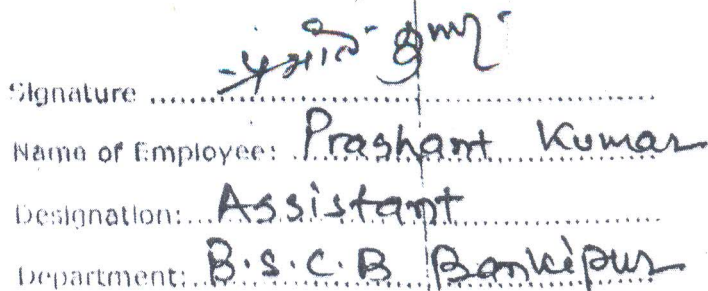 Signature
Name of Employee: Prashant Kumar
Designation: Assistant
Department: B.S.C.B Bankipur